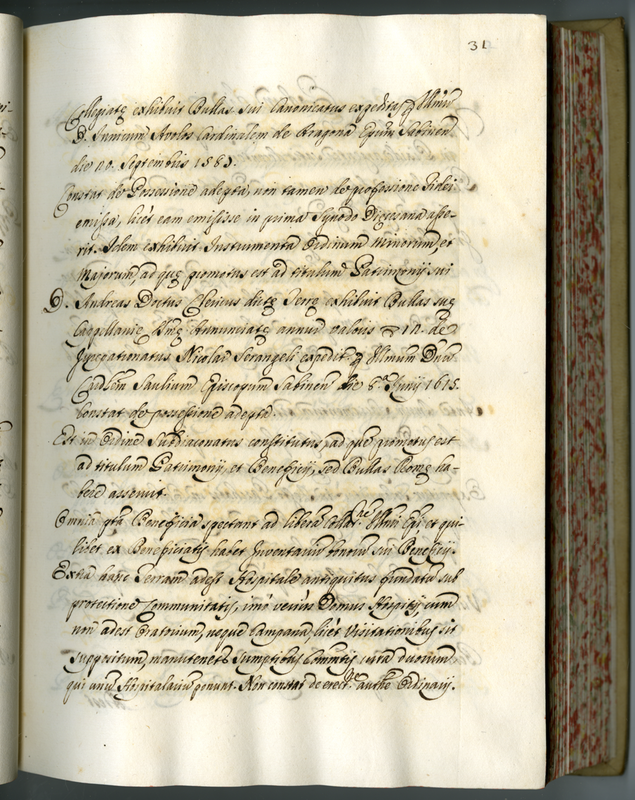 31
Collegiatę exhibuit Bullas sui Canonicatus expeditas p Illm̃u
D. Innicum Avolos Cardinalem de Aragona Epũm Sabinen
die Septembris 1583.
Constat de Possessione adepta, non tamen de professione Fidei
emissa, licet eam emisisse in prima Synodo Diocesana asse-
rit. Idem exhibuit Instrumenta Ordinum Minorum, et
Majorum, ad quę promotus est ad titulum Patrimonij sui
D. Andreas Doctus Clericus dictę Terrę exhibuit Bullas suę
Cappellanię Annunciatę annui valoris 12. de
Juspatronatus Nicolai Serangeli expedit. p Illmum Dnũ
Cardlem Saulium Episcopum Sabinen die 6.a Junij 1615.
Constat de possessione adepta.
Est in Ordine Subdiaconatus constitutus, ad quẽ promotus est
ad titulum Patrimonij, et Beneficij, sed Bullas Romę ha-
bere asseruit.
Omnia pta Beneficia spectant ad liberã Collat.ne Illmi Epi et qui-
libet ex Beneficiatis habet Inventariũ bonorũ sui Beneficij.
Extra hanc Terram adest Hospitale antiquitus fundatũ sub
protectione Communitatis, imo verius Domus Hospitij, cum
non adest Oratorium, neque Campana, licet Visitationibus sit
suppositum, manutenetr sumptibus Commtis cura duorum,
qui unũ Hospitalariũ ponunt. Non constat de erect.ne authe Ordinarij.